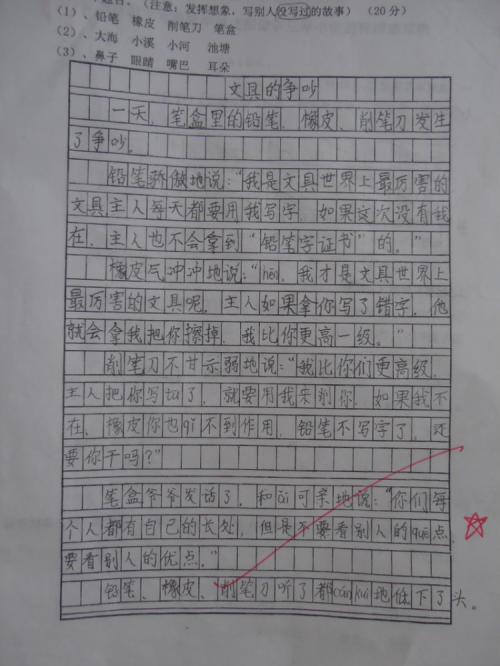 (注意：发挥想象，写别人没写过的故事) (20分)
(1)、铅笔 橡皮 削笔刀 笔盒
(2)、大海 小溪 小河 池塘
(3)、鼻子 眼睛 嘴巴 耳朵
文具的争吵
一天，笔盒里的铅笔、橡皮、削笔刀发生
了争吵。
铅笔骄傲地说："我是文具世界上最厉害的
文具主人每天都要用我写字，如果这次没有我
在，主人也不会拿到"铅笔字证书"的。"
橡皮气冲冲地说："hēn，我才是文具世界上
最厉害的文具呢，主人如果拿你写了错字，他
就会拿我把你擦掉，我比你更高一级。"
削笔刀不甘示弱地说："我比你们更高级，
主人把你写tū了，就要用我来削你，如果我不
在，橡皮你也qǐ不到作用，铅笔不写字了，还
要你干吗？"
笔盒爷爷发话了，和ǎi可亲地说："你们每
个人都有自己的长处，但是不要看别人的quē点，
要看别人的优点。"
铅笔、橡皮、削笔刀听了都cán kuì地低下了头。